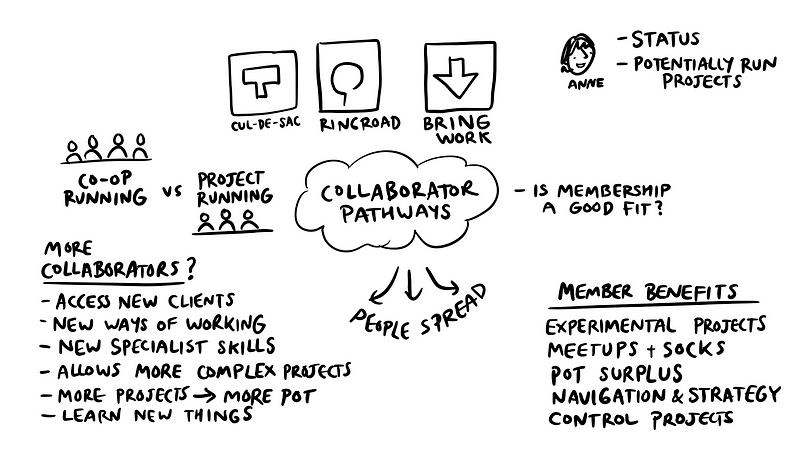 CUL-DE-SAC
RINGROAD
BRING
WORK
ANNE
- STATUS
- POTENTIALLY RUN
PROJECTS
CO-OP
RUNNING
VS
PROJECT
RUNNING
COLLABORATOR
PATHWAYS
- IS MEMBERSHIP
A GOOD FIT?
MORE
COLLABORATORS?
- ACCESS NEW CLIENTS
- NEW WAYS OF WORKING
- NEW SPECIALIST SKILLS
- ALLOWS MORE COMPLEX PROJECTS
- MORE PROJECTS → MORE POT
- LEARN NEW THINGS
PEOPLE SPREAD
MEMBER BENEFITS
EXPERIMENTAL PROJECTS
MEETUPS + SOCKS
POT SURPLUS
NAVIGATION & STRATEGY
CONTROL PROJECTS